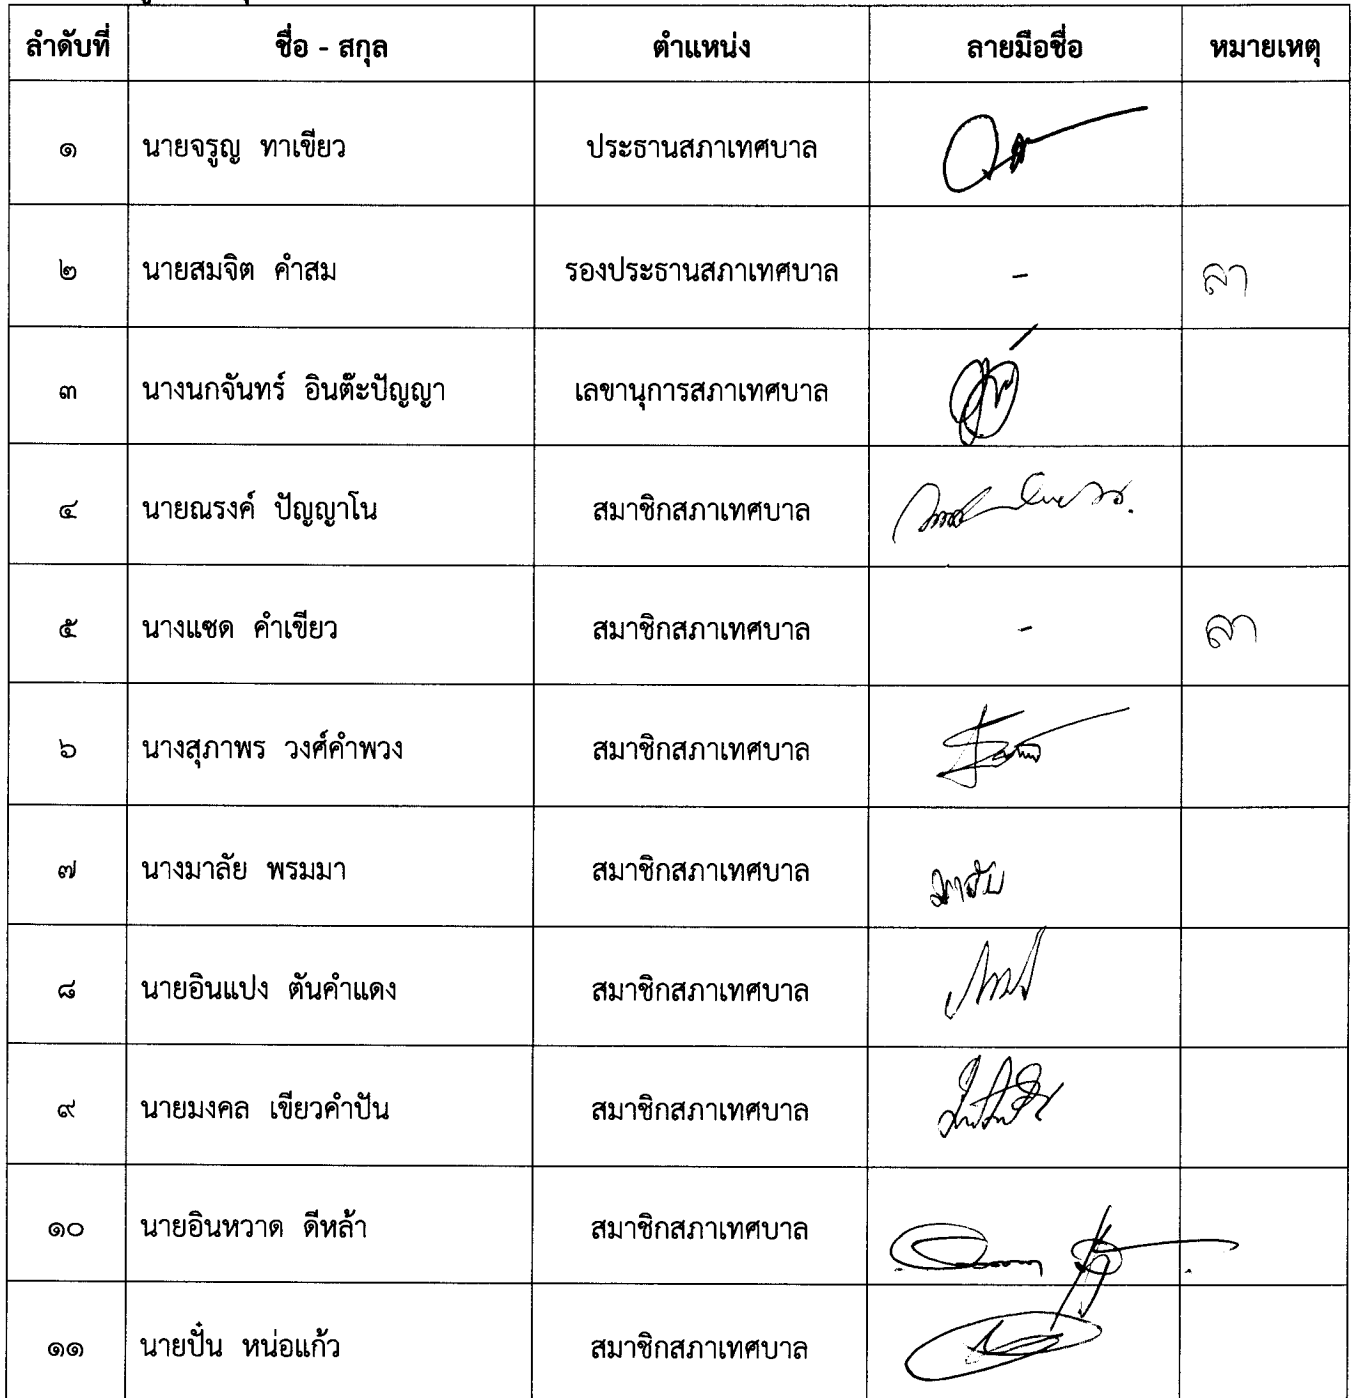 ลำดับที่ ชื่อ - สกุล ตำแหน่ง ลายมือชื่อ หมายเหตุ
๑ นายจรูญ ทาเขียว ประธานสภาเทศบาล
๒ นายสมจิต คำสม รองประธานสภาเทศบาล - ลา
๓ นางนกจันทร์ อินต๊ะปัญญา เลขานุการสภาเทศบาล
๔ นายณรงค์ ปัญญาโน สมาชิกสภาเทศบาล
๕ นางแซด คำเขียว สมาชิกสภาเทศบาล - ลา
๖ นางสุภาพร วงศ์คำพวง สมาชิกสภาเทศบาล
๗ นางมาลัย พรมมา สมาชิกสภาเทศบาล มาลัย
๘ นายอินแปง ตันคำแดง สมาชิกสภาเทศบาล
๙ นายมงคล เขียวคำปัน สมาชิกสภาเทศบาล
๑๐ นายอินหวาด ดีหล้า สมาชิกสภาเทศบาล
๑๑ นายปั๋น หน่อแก้ว สมาชิกสภาเทศบาล